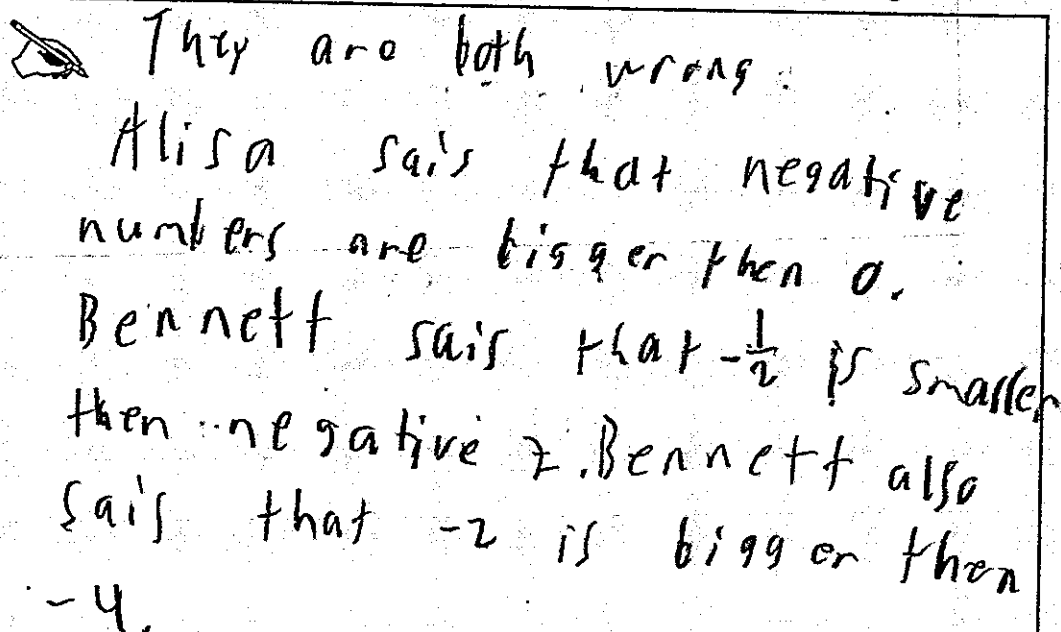 They are both wrong.
Alisa sais that negative
numbers are bigger then 0.
Bennett sais that -1/2 is smaller
then negative 2. Bennett also
sais that -2 is bigger then
-4.